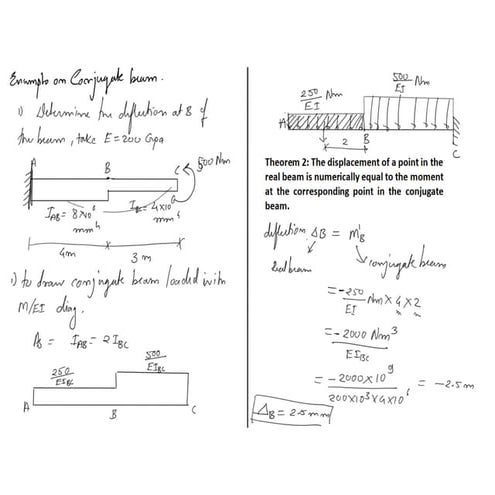 Example on Conjugate beam.
1) Determine the deflection at B of
the beam, take E = 200 Gpa
A
B
C
500 Nm
I_AB = 8x10⁶
mm⁴
I_BC = 4x10⁶
mm⁴
4m
3m
1) to draw conjugate beam loaded with
M/EI diag.
As I_AB = 2 I_BC
250/EI_BC
500/EI_BC
A
B
C
250/EI Nm
500/EI Nm
A
2
B
C
Theorem 2: The displacement of a point in the
real beam is numerically equal to the moment
at the corresponding point in the conjugate
beam.
deflection ΔB = M'B
real beam
conjugate beam
= -250/EI Nm x 4 x 2
= -2000 Nm³/EI_BC
= -2000x10⁹/200x10³x4x10⁶ = -2.5m
ΔB = 2.5mm